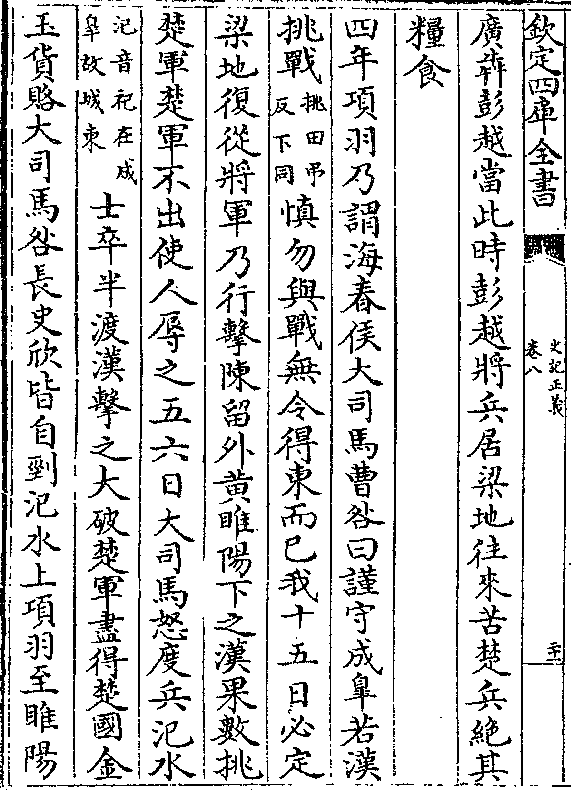 欽定四庫全書
史記正義
卷八
二十一
廣犇彭越當此時彭越將兵居梁地往來苦楚兵絶其
糧食
四年項羽乃謂海春侯大司馬曹咎曰謹守成臯若漢
挑戰挑田弔反下同慎勿與戰無令得東而已我十五日必定
梁地復從將軍乃行擊陳留外黃睢陽下之漢果數挑
楚軍楚軍不出使人辱之五六日大司馬怒度兵汜水
汜音祀在成臯故城東士卒半渡漢擊之大破楚軍盡得楚國金
玉貨賂大司馬咎長史欣皆自剄汜水上項羽至睢陽